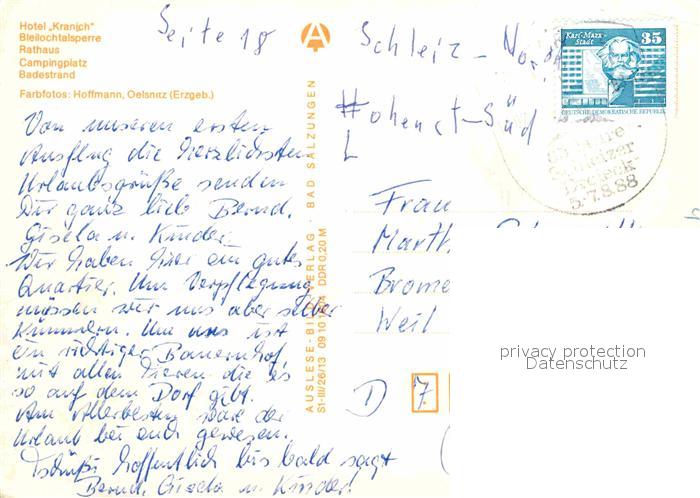 Hotel „Kranich"
Bleilochtalsperre
Rathaus
Campingplatz
Badestrand
Farbfotos: Hoffmann, Oelsnitz (Erzgeb.)
Seite 18
Schleiz - Nord
Hohenst - Süd
L
Von unseren ersten
Ausflug die herzlichsten
Urlaubsgrüße senden
Dir ganz lieb Bernd,
Gisela u. Kinder.
Wir haben hier ein gutes
Quartier. Um Verpflegung
müssen wir uns aber selber
kümmern. Um uns ist
ein richtiger Bauernhof,
mit allen Tieren die es
so auf dem Dorf gibt.
Am allerbesten wäre der
Urlaub bei euch gewesen.
Tschüß hoffentlich bis bald sagt
Bernd, Gisela u. Kinder.
AUSLESE-BILD-VERLAG · BAD SALZUNGEN
S1-III/26/13 DDR 0,20 M
Karl-Marx-
Stadt
35
DEUTSCHE DEMOKRATISCHE REPUBLIK
Schleizer
Dreieck
5.-7.8.88
Frau
Marth
Brome
Weil
D 7
privacy protection
Datenschutz